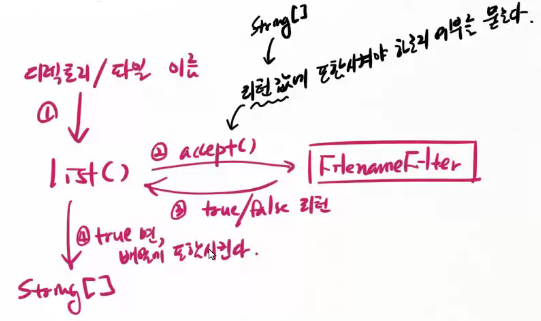 String[]
리턴 값에 포함시켜야 하는지 여부를 묻는다.
디렉토리/파일 이름
①
list()
② accept()
FilenameFilter
③ true/false 리턴
④ true 면,
배열에 포함시킨다.
String[]